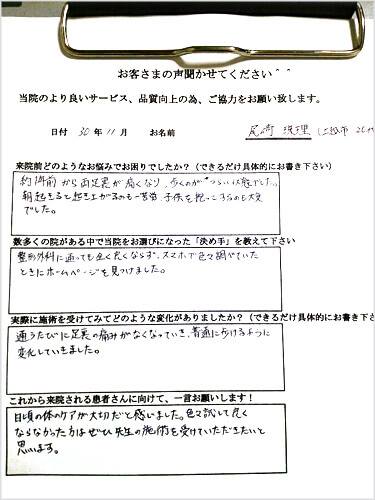 お客さまの声聞かせてください^^
当院のより良いサービス、品質向上の為、ご協力をお願い致します。
日付 30年 11月 お名前 尾崎 理
来院前どのようなお悩みでお困りでしたか?(できるだけ具体的にお書き下さい)
約1年前から両足裏が痛くなり、歩くのがつらい状態でした。
朝起きると起き上がるのも一苦労、子供を抱っこするのも大変
でした。
数多くの院がある中で当院をお選びになった「決め手」を教えて下さい
整形外科に通っても全く良くならず、スマホで色々調べていた
ときにホームページを見つけました。
実際に施術を受けてみてどのような変化がありましたか?(できるだけ具体的にお書き下さ
通うたびに足裏の痛みがなくなっていき、普通に歩けるように
変化していきました。
これから来院される患者さんに向けて、一言お願いします!
日頃の体のケアが大切だと感じました。色々試して良く
ならなかった方はぜひ先生の施術を受けていただきたいと
思います。